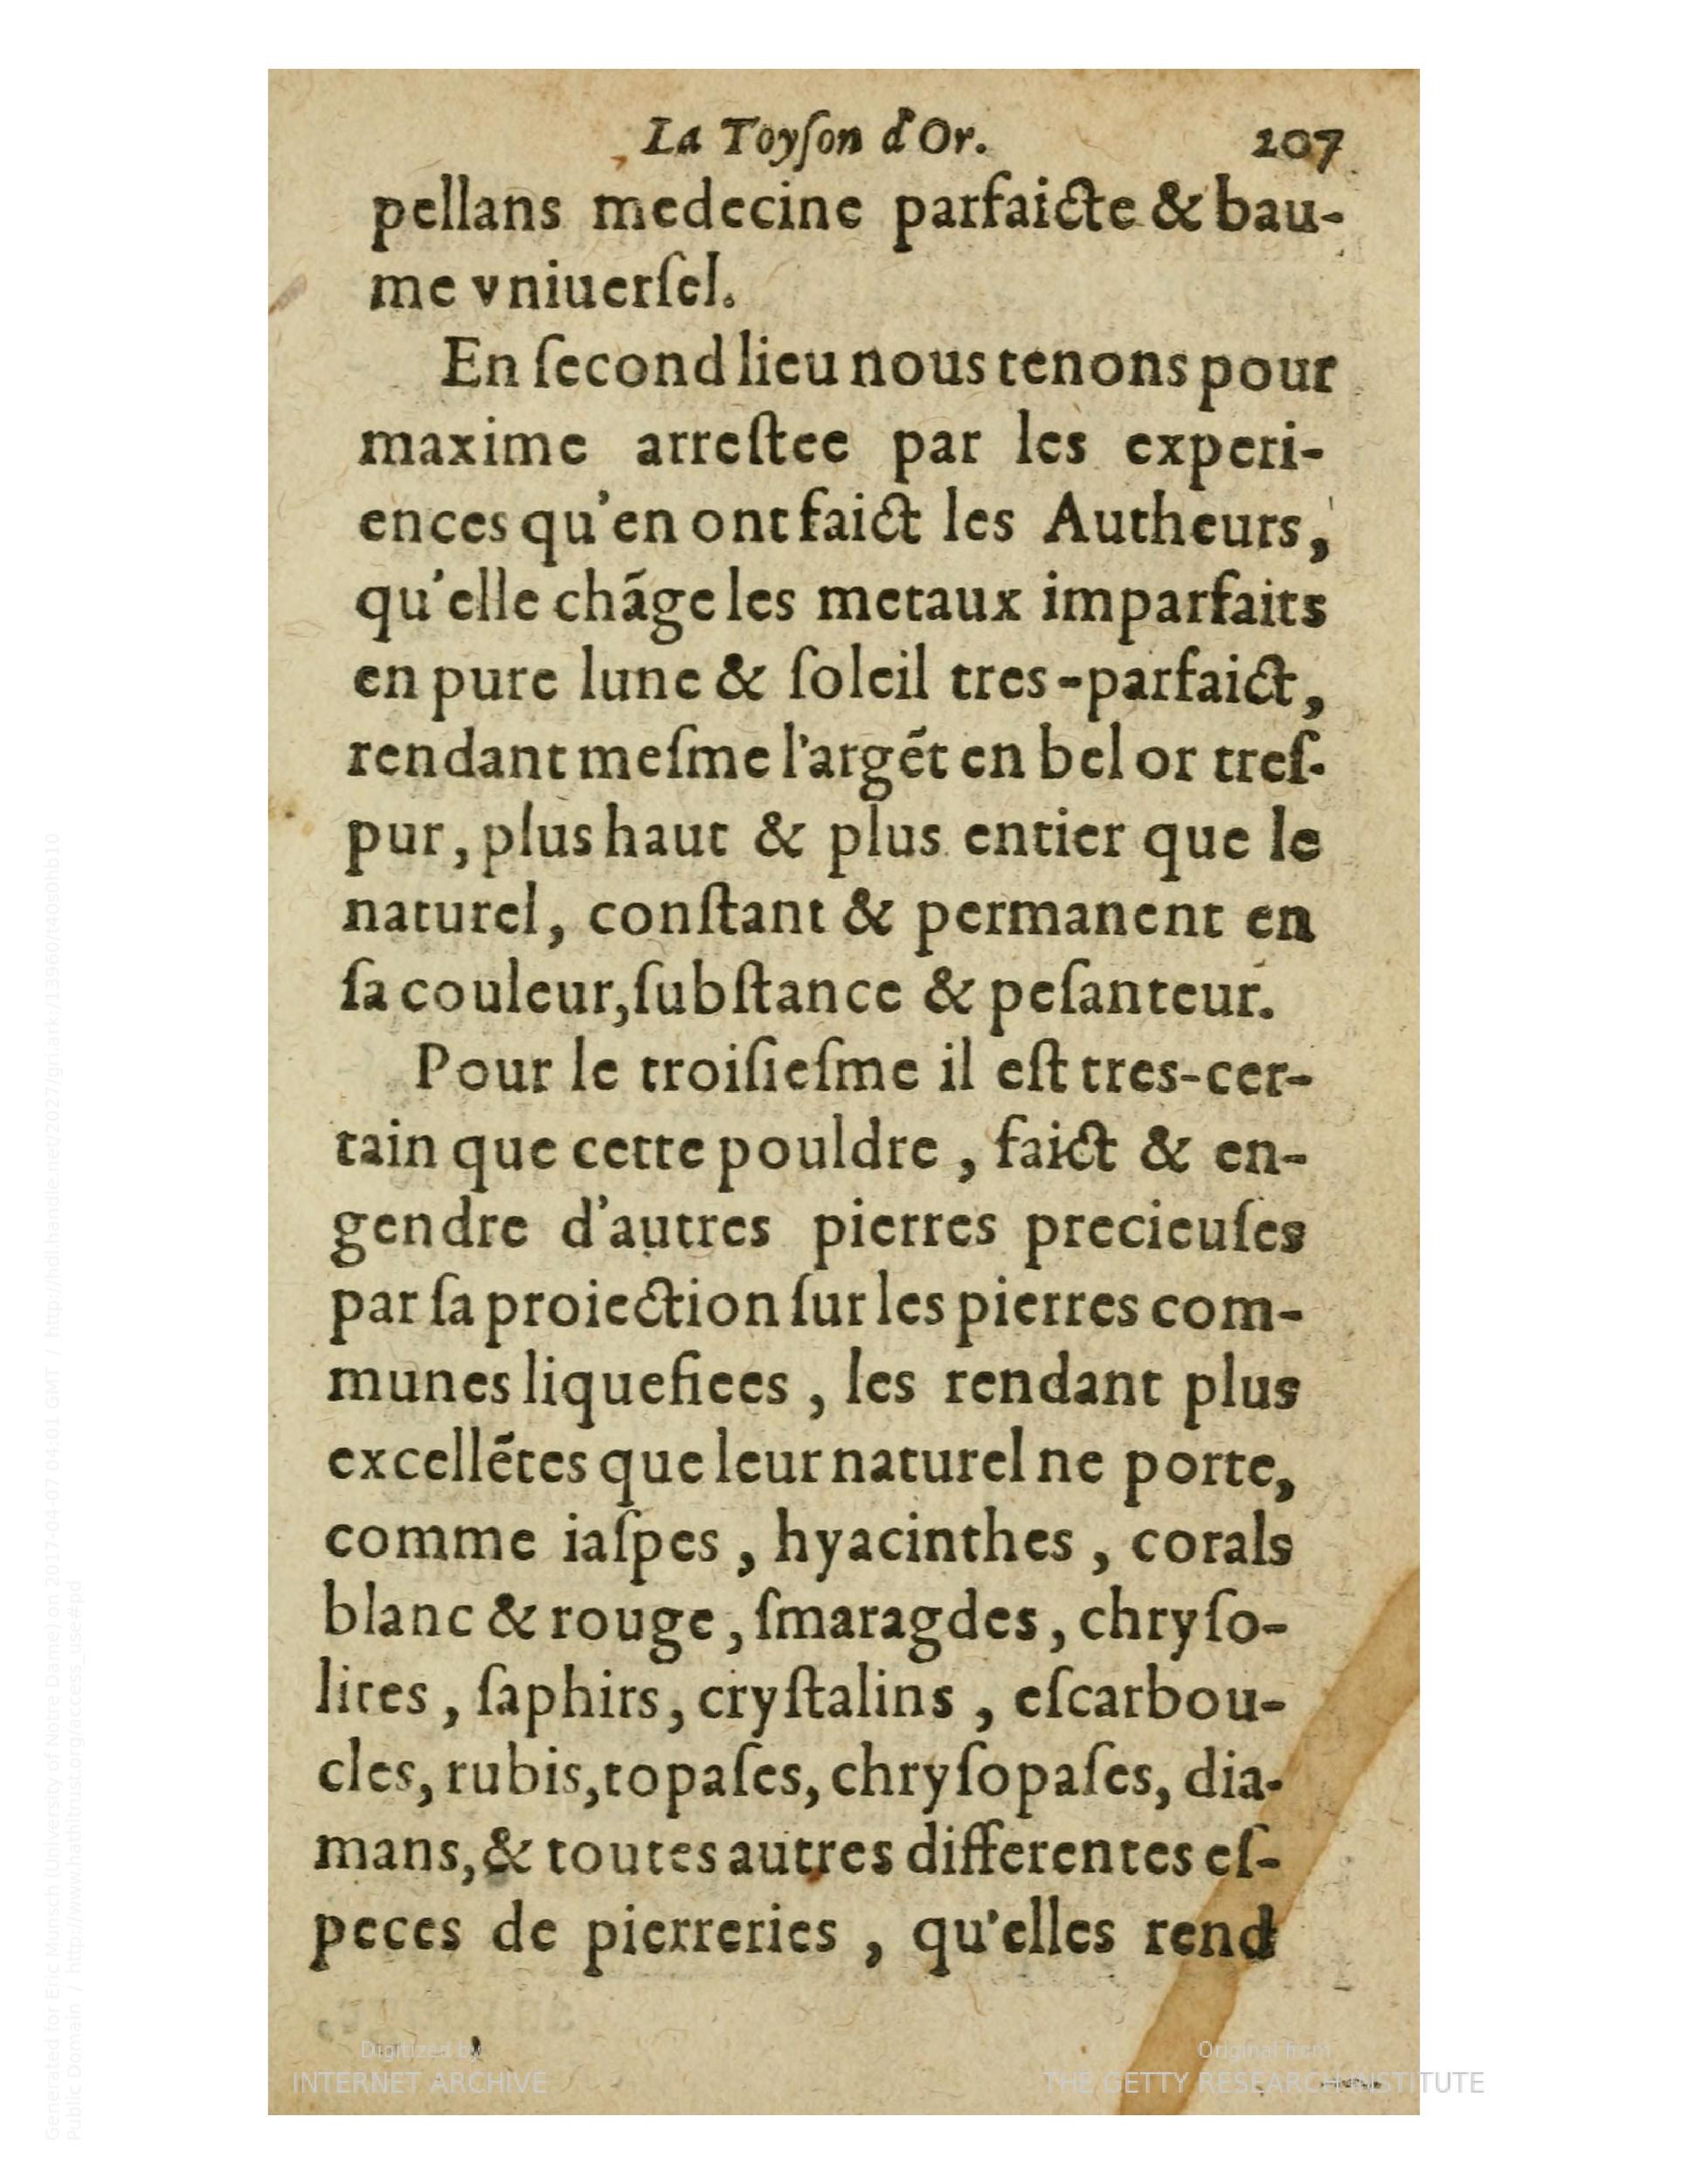 La Toyſon d'Or. 207
pellans medecine parfaicte & bau-
me vniuerſel.
En ſecond lieu nous tenons pour
maxime arreſtee par les experi-
ences qu'en ont faict les Autheurs,
qu'elle chãge les metaux imparfaits
en pure lune & ſoleil tres-parfaict,
rendant meſme l'argẽt en bel or treſ-
pur, plus haut & plus entier que le
naturel, conſtant & permanent en
ſa couleur, ſubſtance & peſanteur.
Pour le troiſieſme il eſt tres-cer-
tain que cette pouldre , faict & en-
gendre d'autres pierres precieuſes
par ſa proiection ſur les pierres com-
munes liquefiees , les rendant plus
excellẽtes que leur naturel ne porte,
comme iaſpes , hyacinthes , corals
blanc & rouge , ſmaragdes , chryſo-
lites , ſaphirs, cryſtalins , eſcarbou-
cles, rubis, topaſes, chryſopaſes, dia-
mans, & toutes autres differentes eſ-
peces de pierreries , qu'elles rend
Digitized by
INTERNET ARCHIVE
Original from
THE GETTY RESEARCH INSTITUTE
Generated for Eric Munsch (University of Notre Dame) on 2017-04-07 04:01 GMT / http://hdl.handle.net/2027/gri.ark:/13960/t40s0hb10
Public Domain / http://www.hathitrust.org/access_use#pd